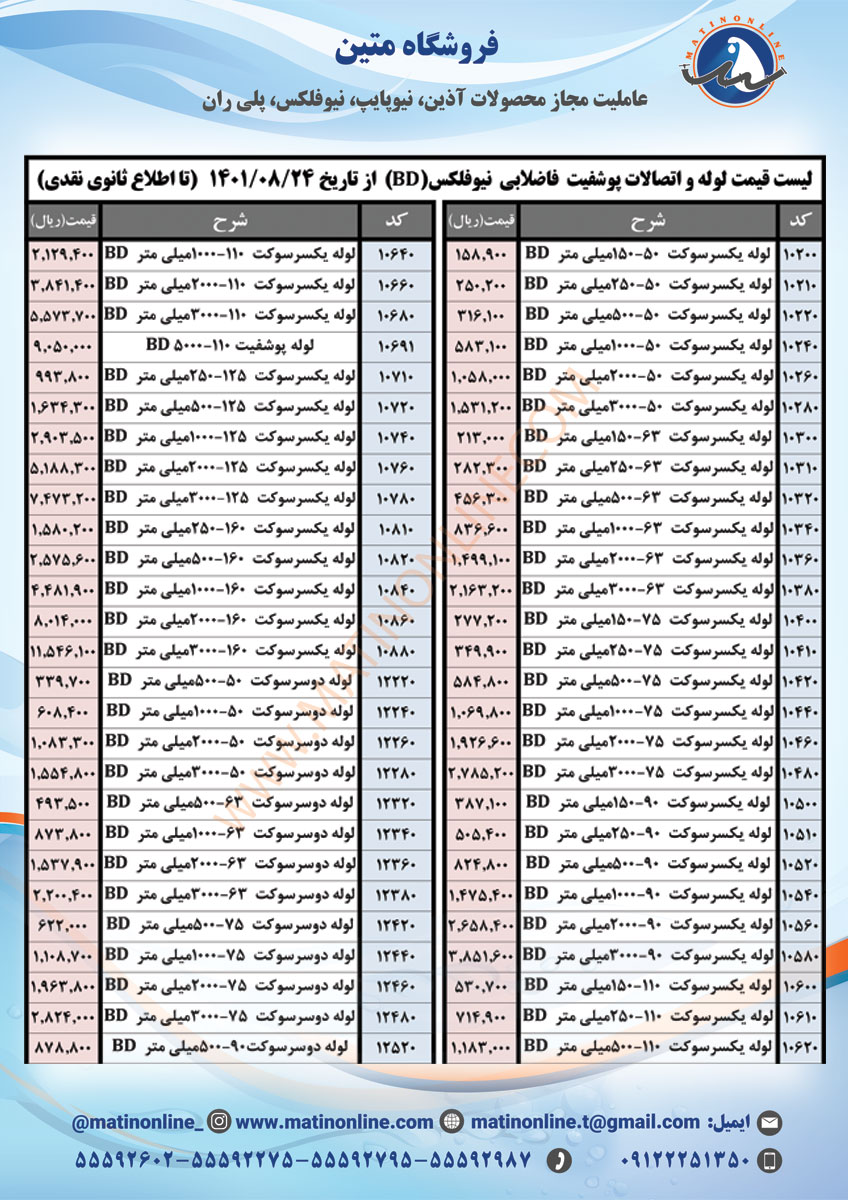 MATINONLINE
فروشگاه متین
عاملیت مجاز محصولات آذین، نیوپایپ، نیوفلکس، پلی ران
لیست قیمت لوله و اتصالات پوشفیت فاضلابی نیوفلکس(BD) از تاریخ ۱۴۰۱/۰۸/۲۴ (تا اطلاع ثانوی نقدی)
کد شرح قیمت(ریال)
۱۰۲۰۰ لوله یکسرسوکت ۵۰-۱۵۰میلی متر BD ۱۵۸,۹۰۰
۱۰۲۱۰ لوله یکسرسوکت ۵۰-۲۵۰میلی متر BD ۲۵۰,۲۰۰
۱۰۲۲۰ لوله یکسرسوکت ۵۰-۵۰۰میلی متر BD ۳۱۶,۱۰۰
۱۰۲۴۰ لوله یکسرسوکت ۵۰-۱۰۰۰میلی متر BD ۵۸۳,۱۰۰
۱۰۲۶۰ لوله یکسرسوکت ۵۰-۲۰۰۰میلی متر BD ۱,۰۵۸,۰۰۰
۱۰۲۸۰ لوله یکسرسوکت ۵۰-۳۰۰۰میلی متر BD ۱,۵۳۱,۲۰۰
۱۰۳۰۰ لوله یکسرسوکت ۶۳-۱۵۰میلی متر BD ۲۱۳,۰۰۰
۱۰۳۱۰ لوله یکسرسوکت ۶۳-۲۵۰میلی متر BD ۲۸۲,۳۰۰
۱۰۳۲۰ لوله یکسرسوکت ۶۳-۵۰۰میلی متر BD ۴۵۶,۳۰۰
۱۰۳۴۰ لوله یکسرسوکت ۶۳-۱۰۰۰میلی متر BD ۸۳۶,۶۰۰
۱۰۳۶۰ لوله یکسرسوکت ۶۳-۲۰۰۰میلی متر BD ۱,۴۹۹,۱۰۰
۱۰۳۸۰ لوله یکسرسوکت ۶۳-۳۰۰۰میلی متر BD ۲,۱۶۳,۲۰۰
۱۰۴۰۰ لوله یکسرسوکت ۷۵-۱۵۰میلی متر BD ۲۷۷,۲۰۰
۱۰۴۱۰ لوله یکسرسوکت ۷۵-۲۵۰میلی متر BD ۳۴۹,۹۰۰
۱۰۴۲۰ لوله یکسرسوکت ۷۵-۵۰۰میلی متر BD ۵۸۴,۸۰۰
۱۰۴۴۰ لوله یکسرسوکت ۷۵-۱۰۰۰میلی متر BD ۱,۰۶۹,۸۰۰
۱۰۴۶۰ لوله یکسرسوکت ۷۵-۲۰۰۰میلی متر BD ۱,۹۲۶,۶۰۰
۱۰۴۸۰ لوله یکسرسوکت ۷۵-۳۰۰۰میلی متر BD ۲,۷۸۵,۲۰۰
۱۰۵۰۰ لوله یکسرسوکت ۹۰-۱۵۰میلی متر BD ۳۸۷,۱۰۰
۱۰۵۱۰ لوله یکسرسوکت ۹۰-۲۵۰میلی متر BD ۵۰۵,۴۰۰
۱۰۵۲۰ لوله یکسرسوکت ۹۰-۵۰۰میلی متر BD ۸۲۴,۸۰۰
۱۰۵۴۰ لوله یکسرسوکت ۹۰-۱۰۰۰میلی متر BD ۱,۴۷۵,۴۰۰
۱۰۵۶۰ لوله یکسرسوکت ۹۰-۲۰۰۰میلی متر BD ۲,۶۵۸,۴۰۰
۱۰۵۸۰ لوله یکسرسوکت ۹۰-۳۰۰۰میلی متر BD ۳,۸۵۱,۶۰۰
۱۰۶۰۰ لوله یکسرسوکت ۱۱۰-۱۵۰میلی متر BD ۵۳۰,۷۰۰
۱۰۶۱۰ لوله یکسرسوکت ۱۱۰-۲۵۰میلی متر BD ۷۱۴,۹۰۰
۱۰۶۲۰ لوله یکسرسوکت ۱۱۰-۵۰۰میلی متر BD ۱,۱۸۳,۰۰۰
کد شرح قیمت(ریال)
۱۰۶۴۰ لوله یکسرسوکت ۱۱۰-۱۰۰۰میلی متر BD ۲,۱۲۹,۴۰۰
۱۰۶۶۰ لوله یکسرسوکت ۱۱۰-۲۰۰۰میلی متر BD ۳,۸۴۱,۴۰۰
۱۰۶۸۰ لوله یکسرسوکت ۱۱۰-۳۰۰۰میلی متر BD ۵,۵۷۳,۷۰۰
۱۰۶۹۱ لوله پوشفیت ۱۱۰-۵۰۰۰ BD ۹,۰۵۰,۰۰۰
۱۰۷۱۰ لوله یکسرسوکت ۱۲۵-۲۵۰میلی متر BD ۹۹۳,۸۰۰
۱۰۷۲۰ لوله یکسرسوکت ۱۲۵-۵۰۰میلی متر BD ۱,۶۳۴,۳۰۰
۱۰۷۴۰ لوله یکسرسوکت ۱۲۵-۱۰۰۰میلی متر BD ۲,۹۰۳,۵۰۰
۱۰۷۶۰ لوله یکسرسوکت ۱۲۵-۲۰۰۰میلی متر BD ۵,۱۸۸,۳۰۰
۱۰۷۸۰ لوله یکسرسوکت ۱۲۵-۳۰۰۰میلی متر BD ۷,۴۷۳,۲۰۰
۱۰۸۱۰ لوله یکسرسوکت ۱۶۰-۲۵۰میلی متر BD ۱,۵۸۰,۲۰۰
۱۰۸۲۰ لوله یکسرسوکت ۱۶۰-۵۰۰میلی متر BD ۲,۵۷۵,۶۰۰
۱۰۸۴۰ لوله یکسرسوکت ۱۶۰-۱۰۰۰میلی متر BD ۴,۴۸۱,۹۰۰
۱۰۸۶۰ لوله یکسرسوکت ۱۶۰-۲۰۰۰میلی متر BD ۸,۰۱۴,۰۰۰
۱۰۸۸۰ لوله یکسرسوکت ۱۶۰-۳۰۰۰میلی متر BD ۱۱,۵۴۶,۱۰۰
۱۲۲۲۰ لوله دوسرسوکت ۵۰-۵۰۰میلی متر BD ۳۳۹,۷۰۰
۱۲۲۴۰ لوله دوسرسوکت ۵۰-۱۰۰۰میلی متر BD ۶۰۸,۴۰۰
۱۲۲۶۰ لوله دوسرسوکت ۵۰-۲۰۰۰میلی متر BD ۱,۰۸۳,۳۰۰
۱۲۲۸۰ لوله دوسرسوکت ۵۰-۳۰۰۰میلی متر BD ۱,۵۵۴,۸۰۰
۱۲۳۲۰ لوله دوسرسوکت ۶۳-۵۰۰میلی متر BD ۴۹۳,۵۰۰
۱۲۳۴۰ لوله دوسرسوکت ۶۳-۱۰۰۰میلی متر BD ۸۷۳,۸۰۰
۱۲۳۶۰ لوله دوسرسوکت ۶۳-۲۰۰۰میلی متر BD ۱,۵۳۷,۹۰۰
۱۲۳۸۰ لوله دوسرسوکت ۶۳-۳۰۰۰میلی متر BD ۲,۲۰۰,۴۰۰
۱۲۴۲۰ لوله دوسرسوکت ۷۵-۵۰۰میلی متر BD ۶۲۲,۰۰۰
۱۲۴۴۰ لوله دوسرسوکت ۷۵-۱۰۰۰میلی متر BD ۱,۱۰۸,۷۰۰
۱۲۴۶۰ لوله دوسرسوکت ۷۵-۲۰۰۰میلی متر BD ۱,۹۶۳,۸۰۰
۱۲۴۸۰ لوله دوسرسوکت ۷۵-۳۰۰۰میلی متر BD ۲,۸۲۴,۰۰۰
۱۲۵۲۰ لوله دوسرسوکت۹۰-۵۰۰میلی متر BD ۸۷۸,۸۰۰
WWW.MATINONLINE.COM
ایمیل: matinonline.t@gmail.com www.matinonline.com @matinonline_
۰۹۱۲۲۲۵۱۳۵۰ ۵۵۵۹۲۶۰۲-۵۵۵۹۲۲۷۵-۵۵۵۹۲۷۹۵-۵۵۵۹۲۹۸۷